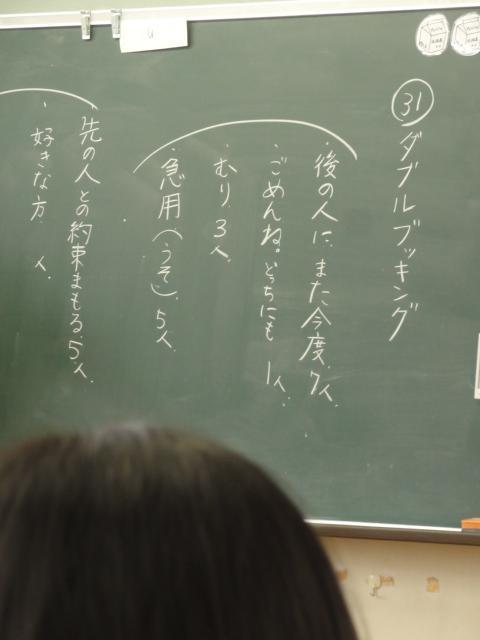 ㉛ ダブルブッキング
・後の人に、また今度、7人、
・ごめんね。どっちにも 1人、
・むり、3人、
・急用（うそ）、5人、
先の人との約束まもる5人、
・好きな方 人、